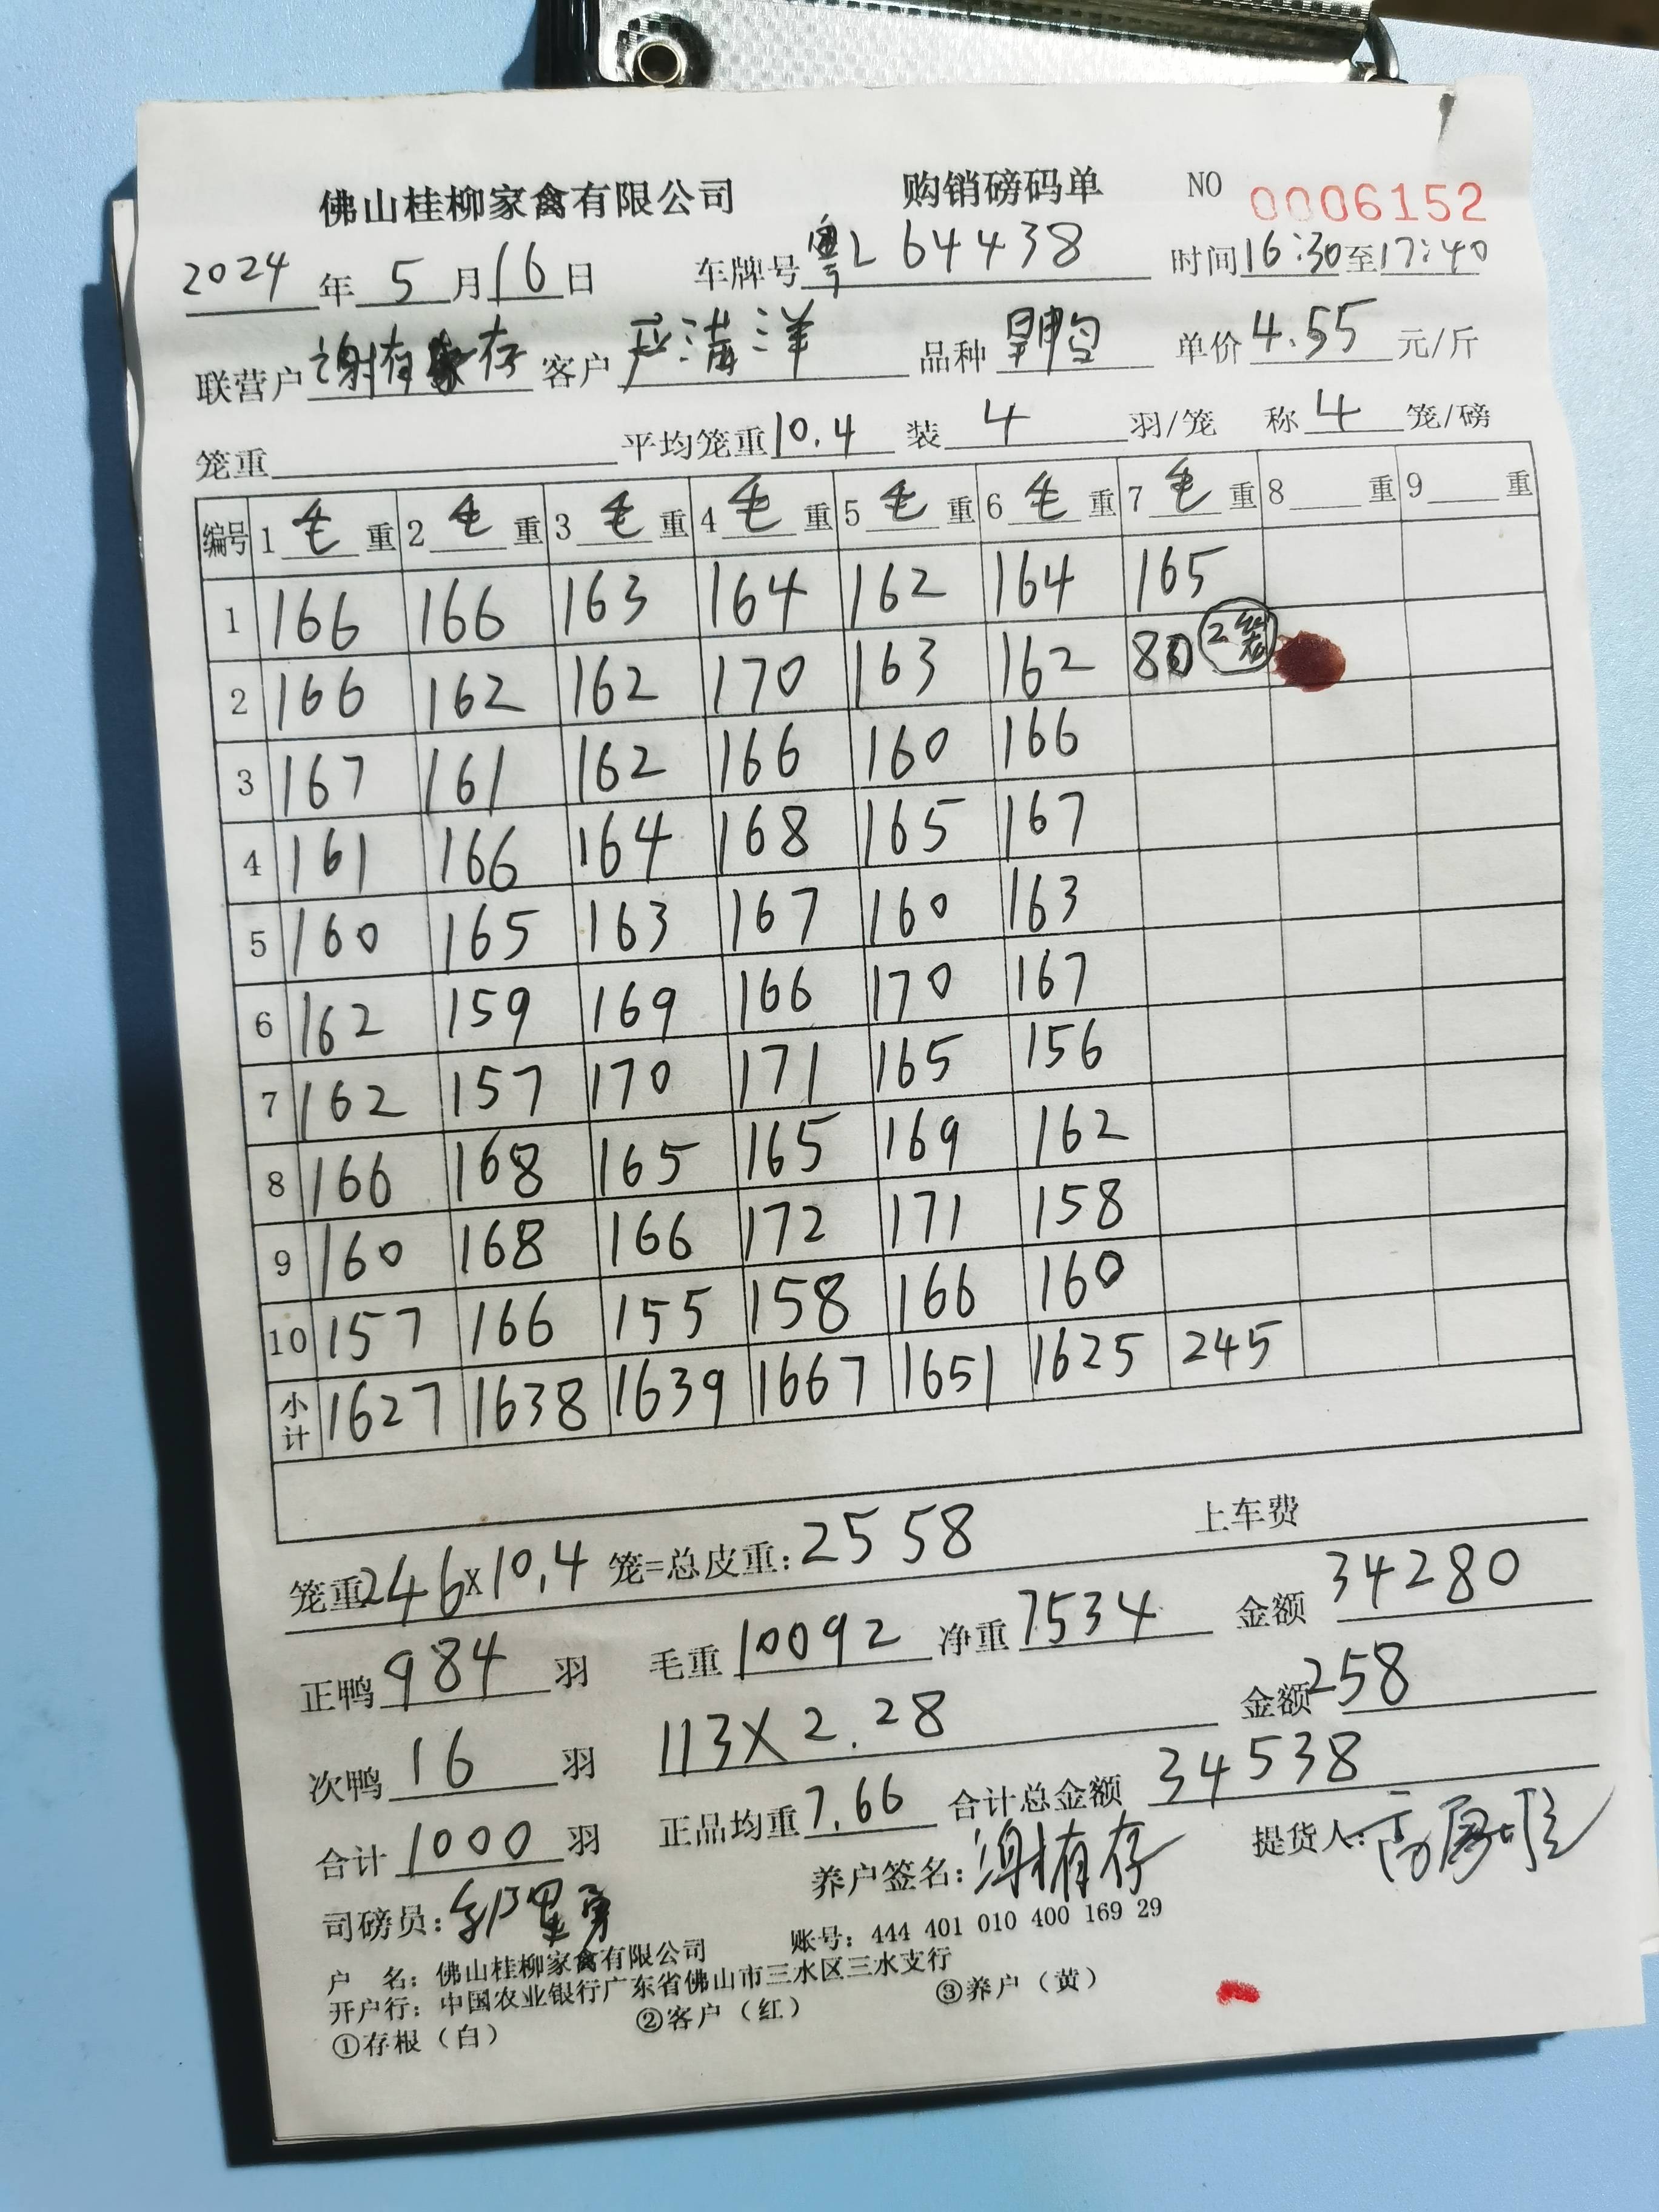 佛山桂柳家禽有限公司 购销磅码单 NO 0006152
2024年5月16日 车牌号粤L 64438 时间16:30至17:40
联营户谢有存 客户严满洋 品种 单价4.55元/斤
笼重 平均笼重10.4 装4羽/笼 称4笼/磅
编号 1毛重 2毛重 3毛重 4毛重 5毛重 6毛重 7毛重 8重 9重
1 166 166 163 164 162 164 165
2 166 162 162 170 163 162 80 2笼
3 167 161 162 166 160 166
4 161 166 164 168 165 167
5 160 165 163 167 160 163
6 162 159 169 166 170 167
7 162 157 170 171 165 156
8 166 168 165 165 169 162
9 160 168 166 172 171 158
10 157 166 155 158 166 160
小计 1627 1638 1639 1667 1651 1625 245
笼重246x10.4笼=总皮重:2558 上车费
正鸭984羽 毛重10092 净重7534 金额34280
次鸭16羽 113X2.28 金额258
合计1000羽 正品均重7.66 合计总金额34538
司磅员: 养户签名:谢有存 提货人:
户 名: 佛山桂柳家禽有限公司 账号: 444 401 010 400 169 29
开户行: 中国农业银行广东省佛山市三水区三水支行
①存根（白） ②客户（红） ③养户（黄）